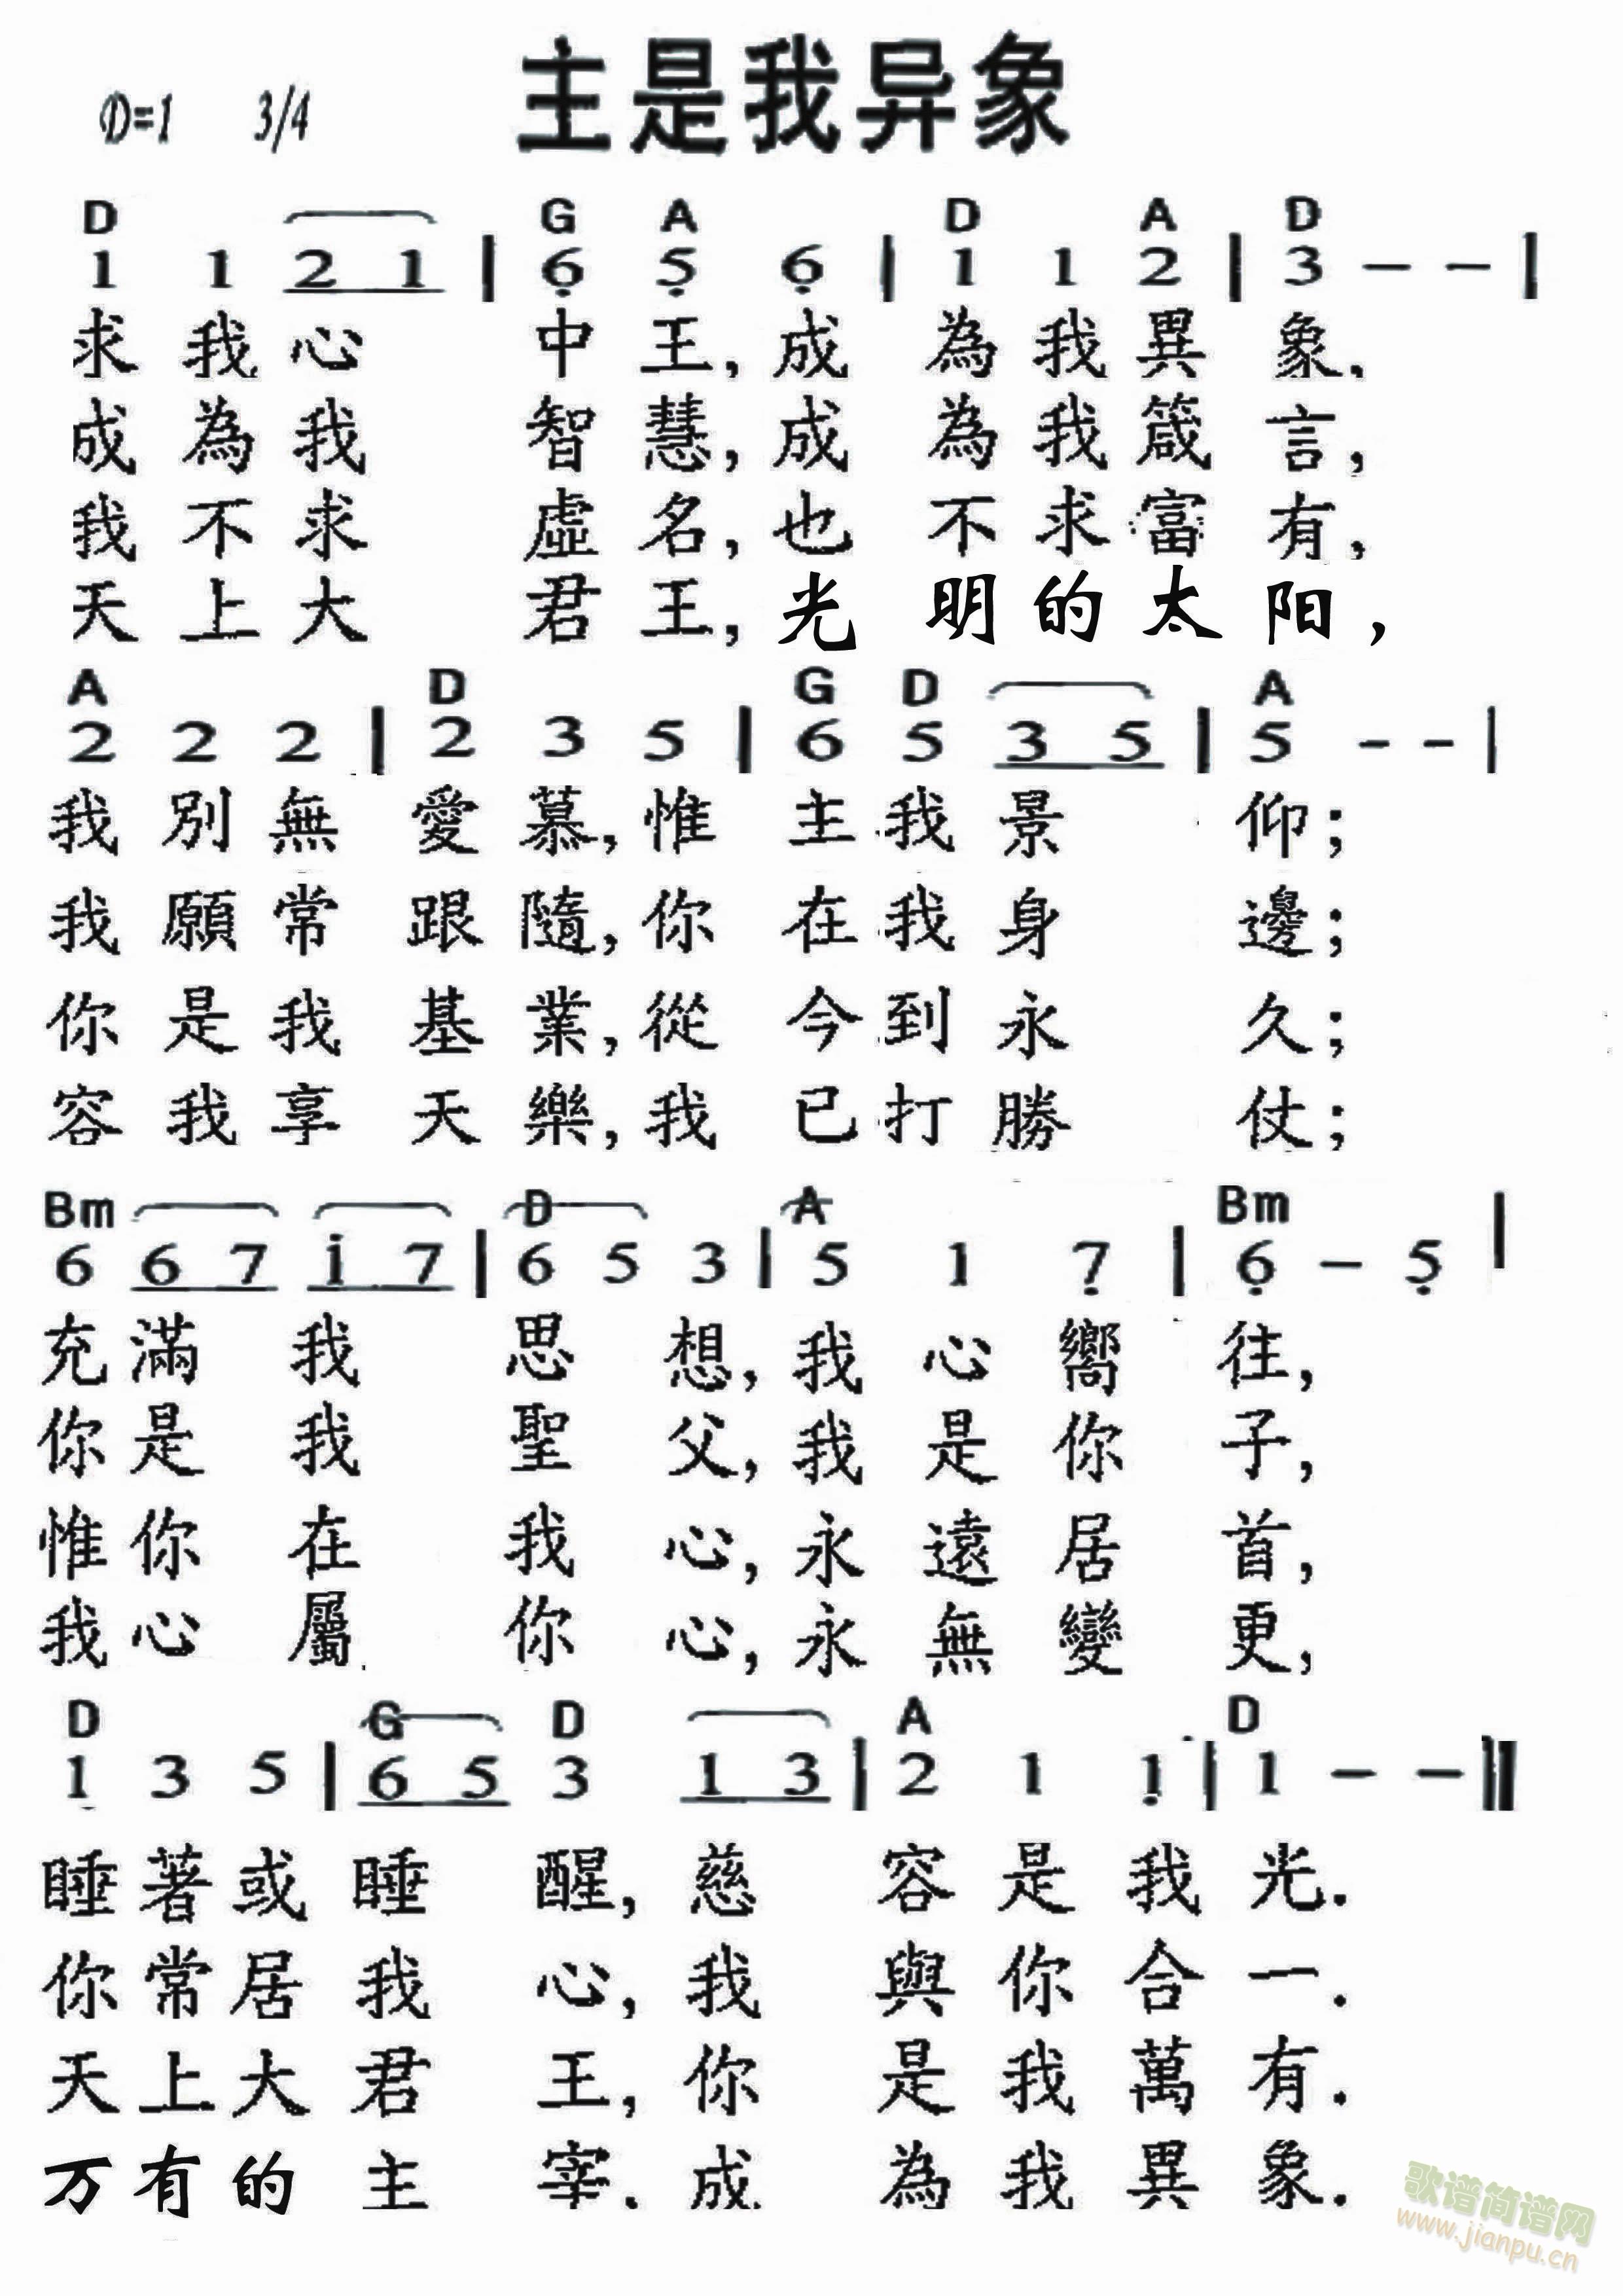 主是我异象
D=1 3/4
D G A D A D
1 1 2 1 | 6̣ 5̣ 6̣ | 1 1 2 | 3 - - |
求我心 中王,成 為我異 象.
成為我 智慧,成 為我箴 言,
我不求 虛名,也 不求富 有,
天上大 君王,光 明的太 阳,
A D G D A
2 2 2 | 2 3 5 | 6 5 3 5 | 5 - - |
我別無 愛慕,惟 主我景 仰;
我願常 跟隨,你 在我身 邊;
你是我 基業,從 今到永 久;
容我享 天樂,我 已打勝 仗;
Bm D A Bm
6 6 7 i 7 | 6 5 3 | 5 1 7̣ | 6̣ - 5̣ |
充滿我 思想,我心嚮 往,
你是我 聖父,我是你 子,
惟你在 我心,永遠居 首,
我心屬 你心,永無變 更,
D G D A D
1 3 5 | 6 5 3 1 3 | 2 1 1̣ | 1 - - ‖
睡著或 睡醒,慈 容是我 光.
你常居 我心,我 與你合 一.
天上大 君王,你 是我萬 有.
万有的 主宰.成 為我異 象.
歌谱简谱网
www.jianpu.cn